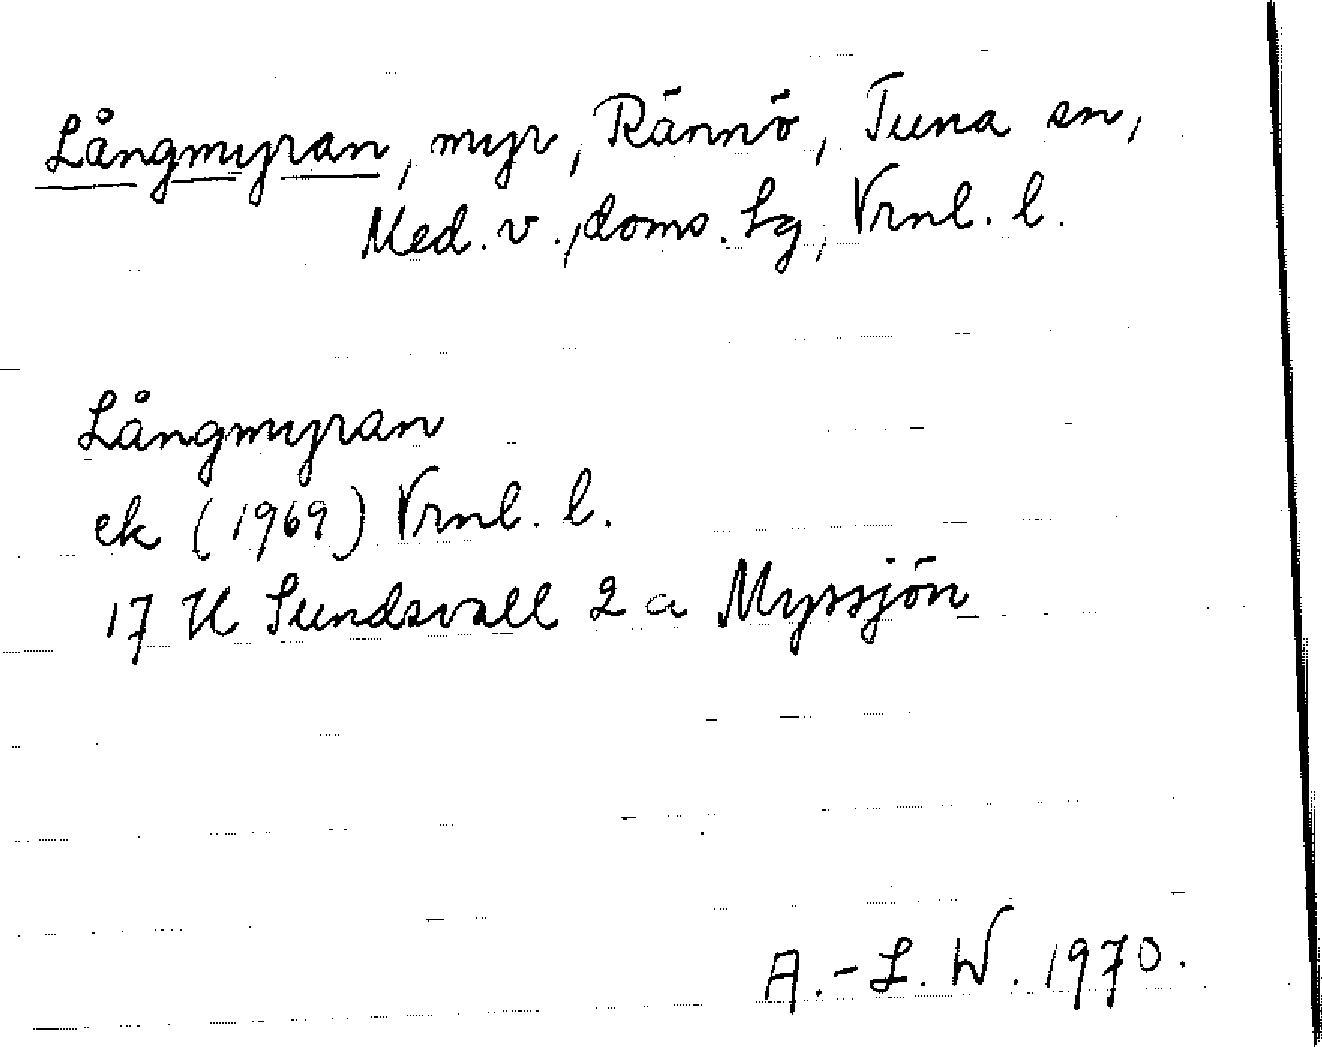 Långmyran, myr, Rännö, Tuna sn,
Med. v., doms. lg, Vrnl. l.
Långmyran
ek (1969) Vrnl. l.
17 H Sundsvall 2 a Myssjön
A.-L. W. 1970.